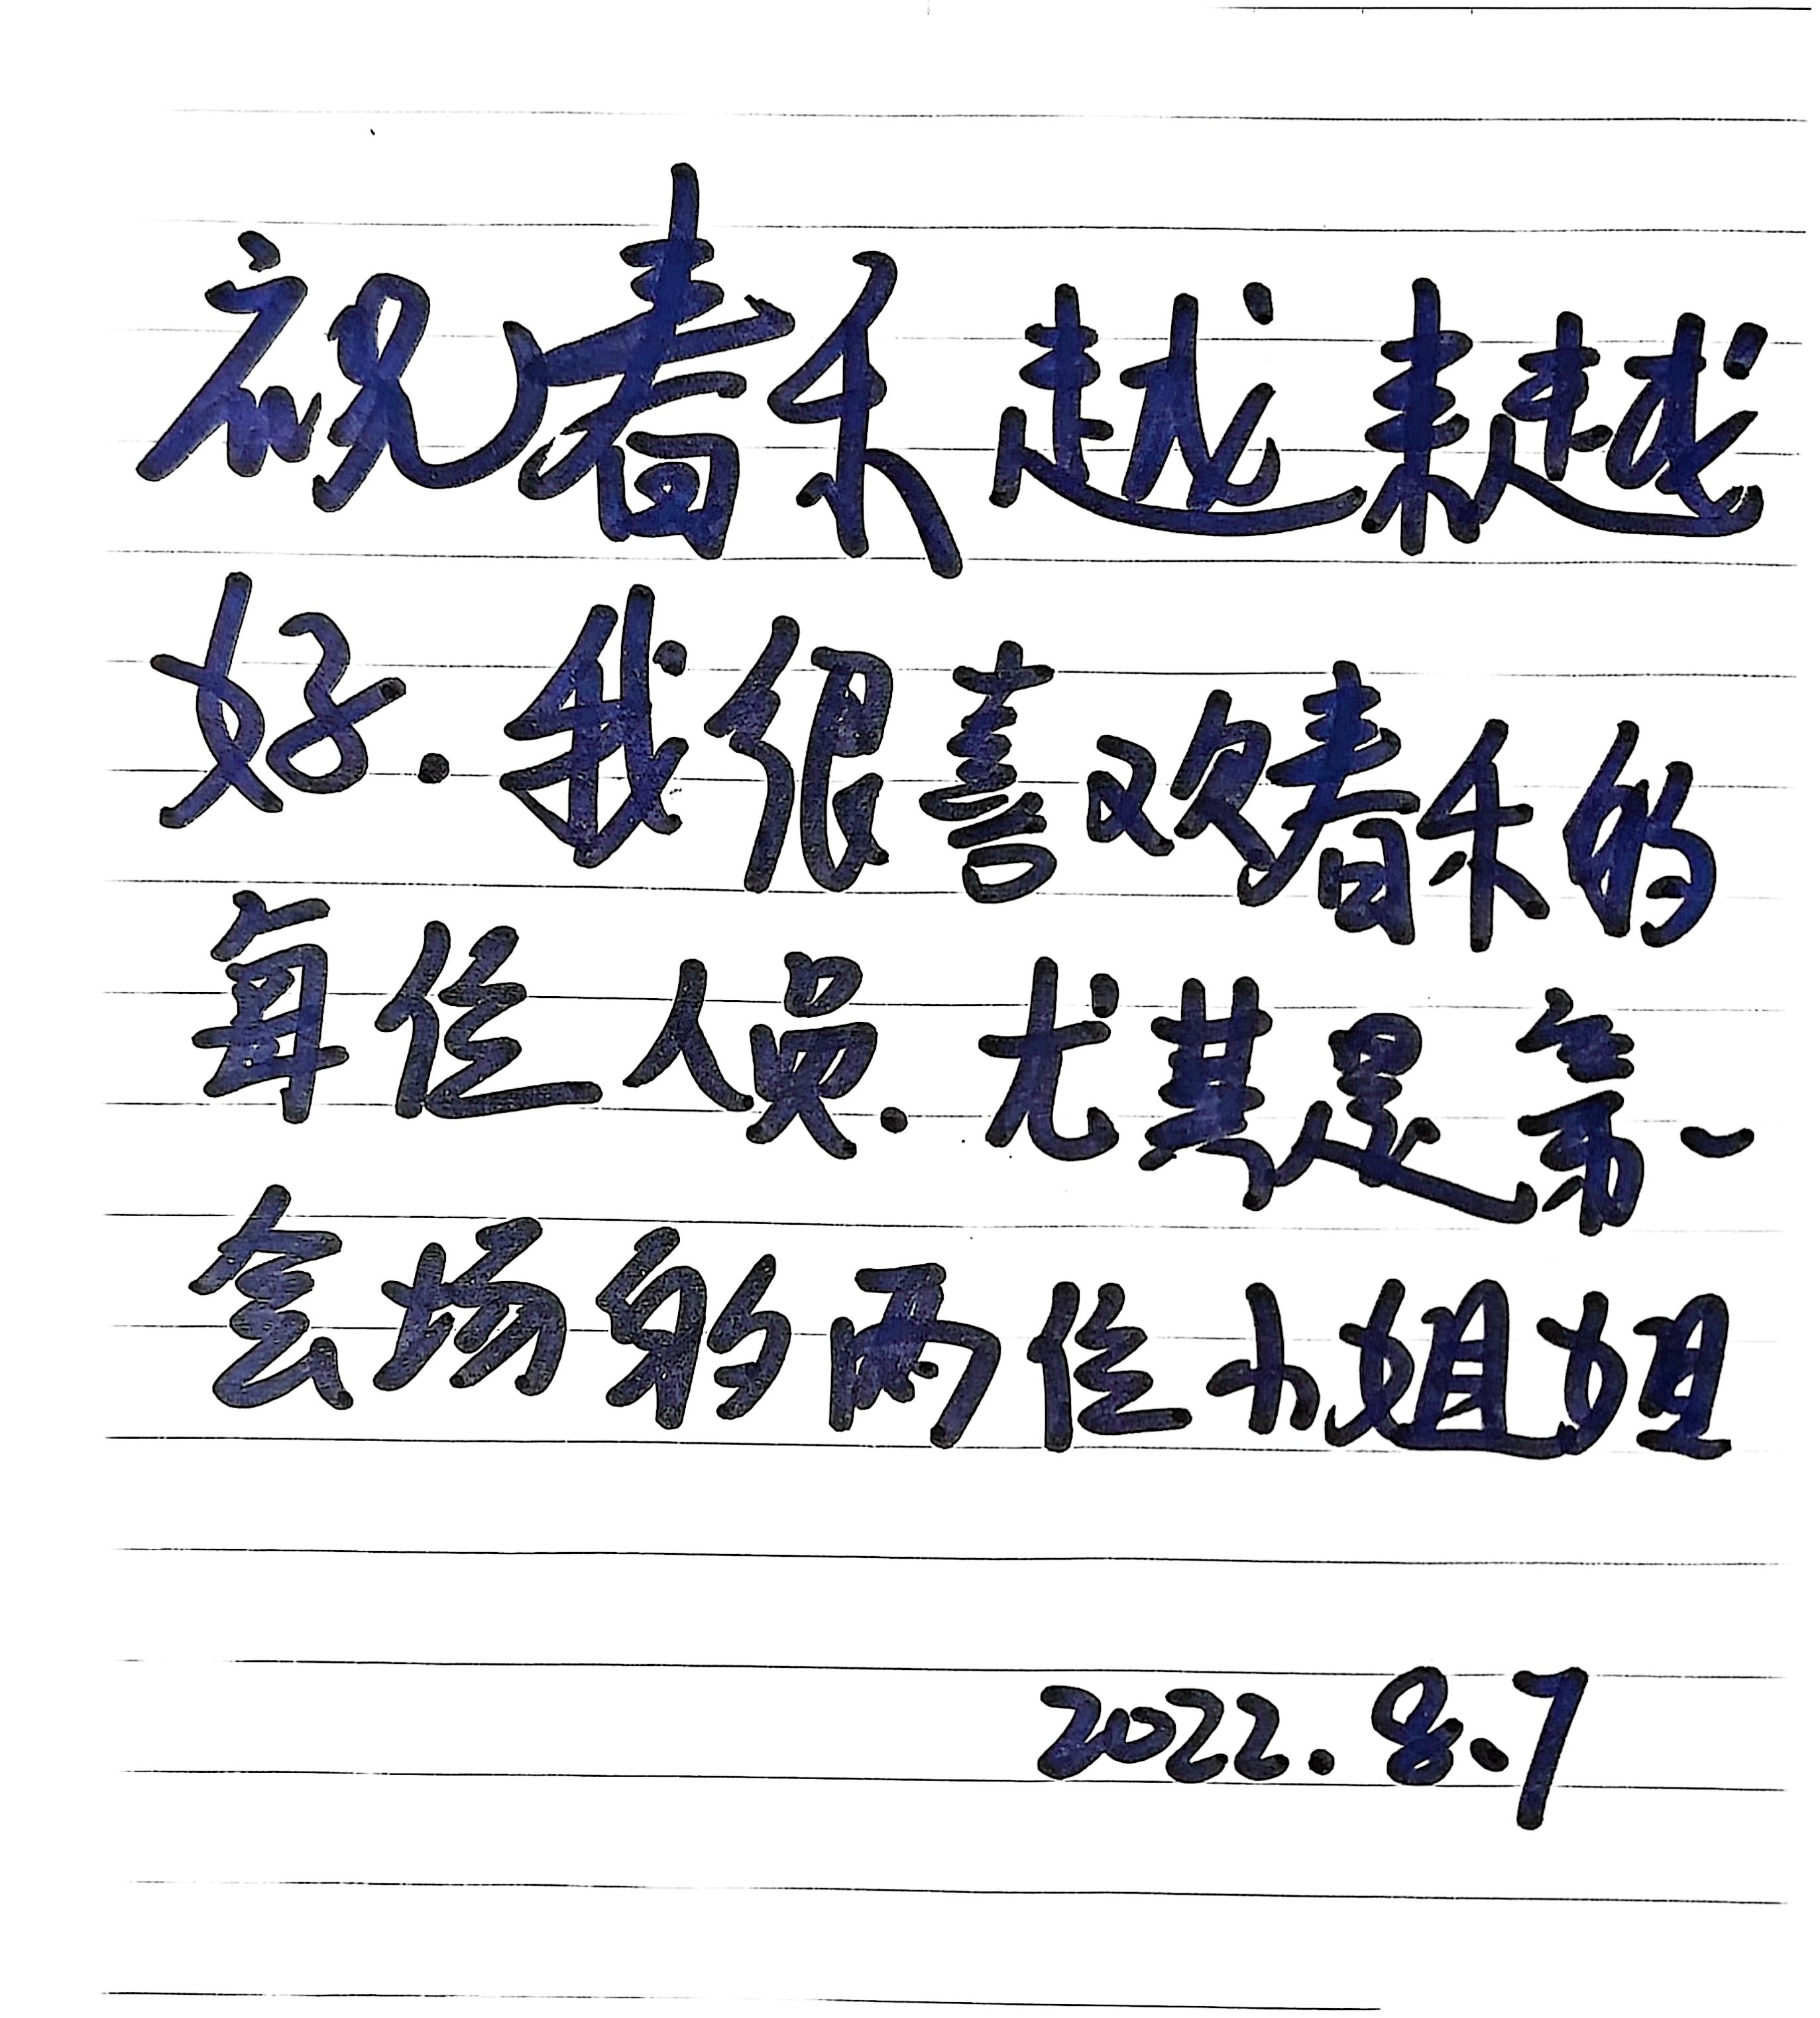 祝春禾越来越
好.我很喜欢春禾的
每位人员.尤其是第一
会场的两位小姐姐
2022.8.7